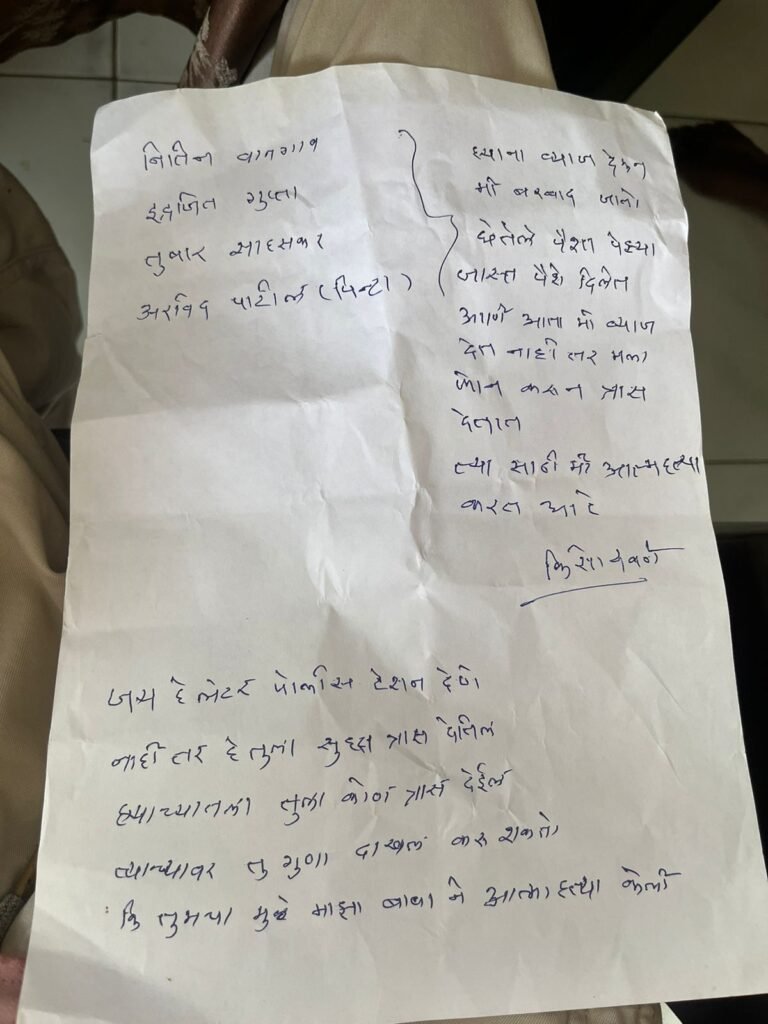 नितिन वानगाव
इंद्रजित गुप्ता
तुषार साहसकर
अरविंद पाटील (पिन्टा)
ह्याना व्याज देऊन
मी बरबाद जालो
घेतले पैशा पेक्ष्या
जास्त पैशे दिलेत
आणि आता मी व्याज
देत नाही तर मला
फोन करून त्रास
देतात
त्या साठी मी आत्महत्या
करत आहे
हे लेटर पोलीस टेशन देणे
नाही तर हे तुला सुध्दा त्रास देतिल
ह्याच्यातला तुला कोण त्रास देईल
त्याच्यावर तु गुणा दाखल करू शकतो
कि तुमच्या मुळे माझा बाबा ने आत्माहत्या केली